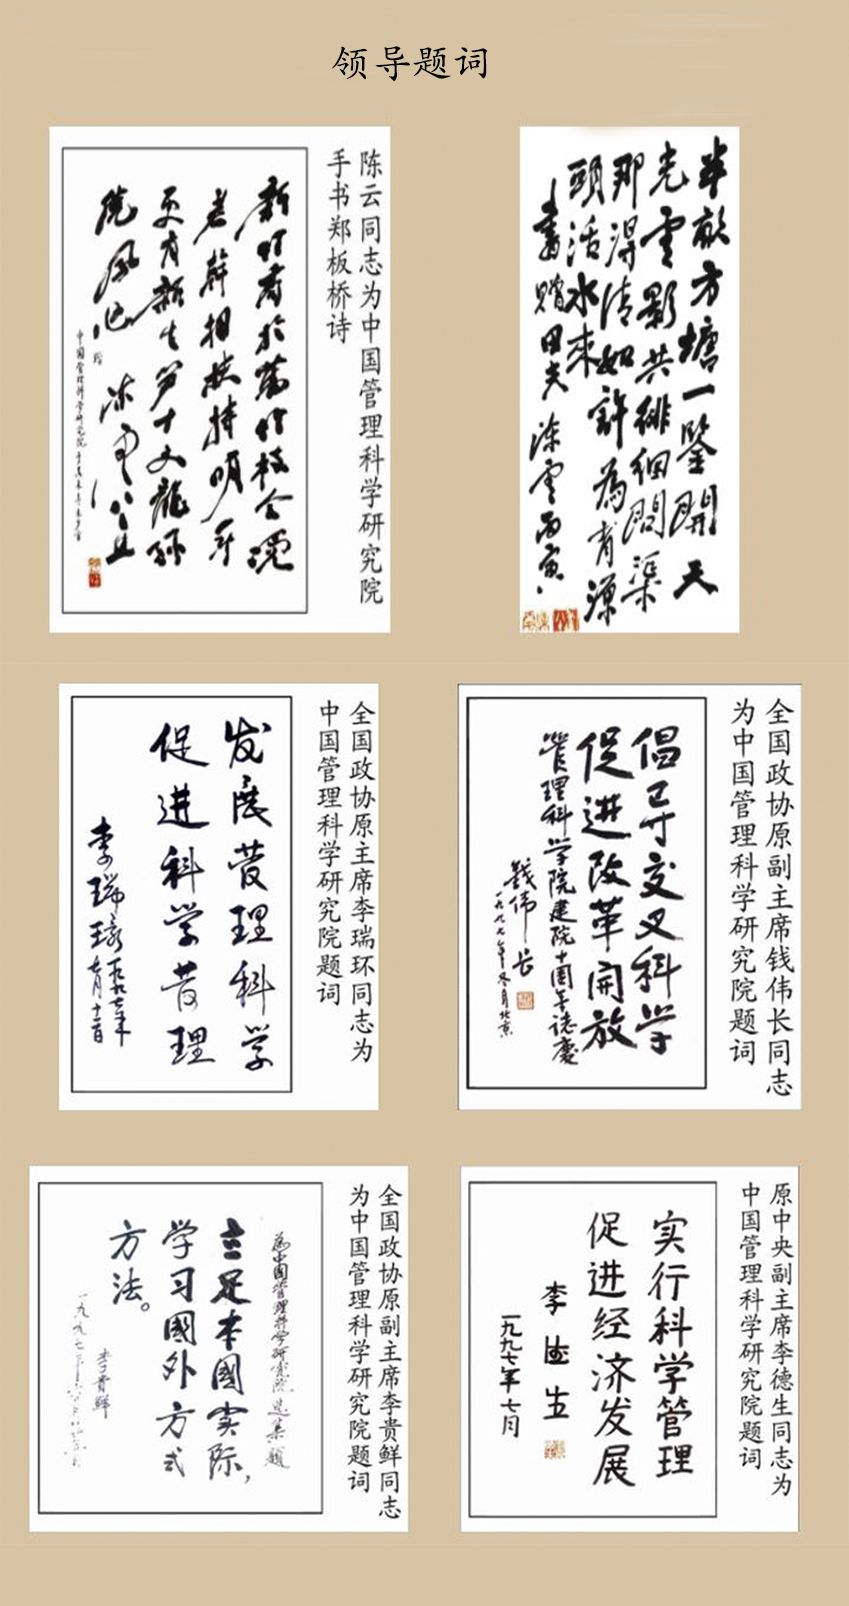 领导题词
陈云同志为中国管理科学研究院
手书郑板桥诗
新竹高於舊竹枝全憑
老幹相扶持明年
更有新生笋十丈龍孫
繞鳳池
陈雲
半畝方塘一鑒開天
光雲影共徘徊問渠
那得清如許為有源
頭活水來
書贈田夫 陈雲 丙寅
全国政协原主席李瑞环同志为
中国管理科学研究院题词
发展管理科学
促进科学管理
李瑞環 一九九七年
七月十二日
全国政协原副主席钱伟长同志
为中国管理科学研究院题词
倡导交叉科学
促进改革开放
管理科学院建院十周年誌慶
钱伟长
一九九七年冬月北京
全国政协原副主席李贵鲜同志
为中国管理科学研究院题词
為中國管理科学研究院选集題
立足本國实际,
学习國外方式
方法。
李貴鲜
原中央副主席李德生同志为
中国管理科学研究院题词
实行科学管理
促进经济发展
李德生
一九九七年七月